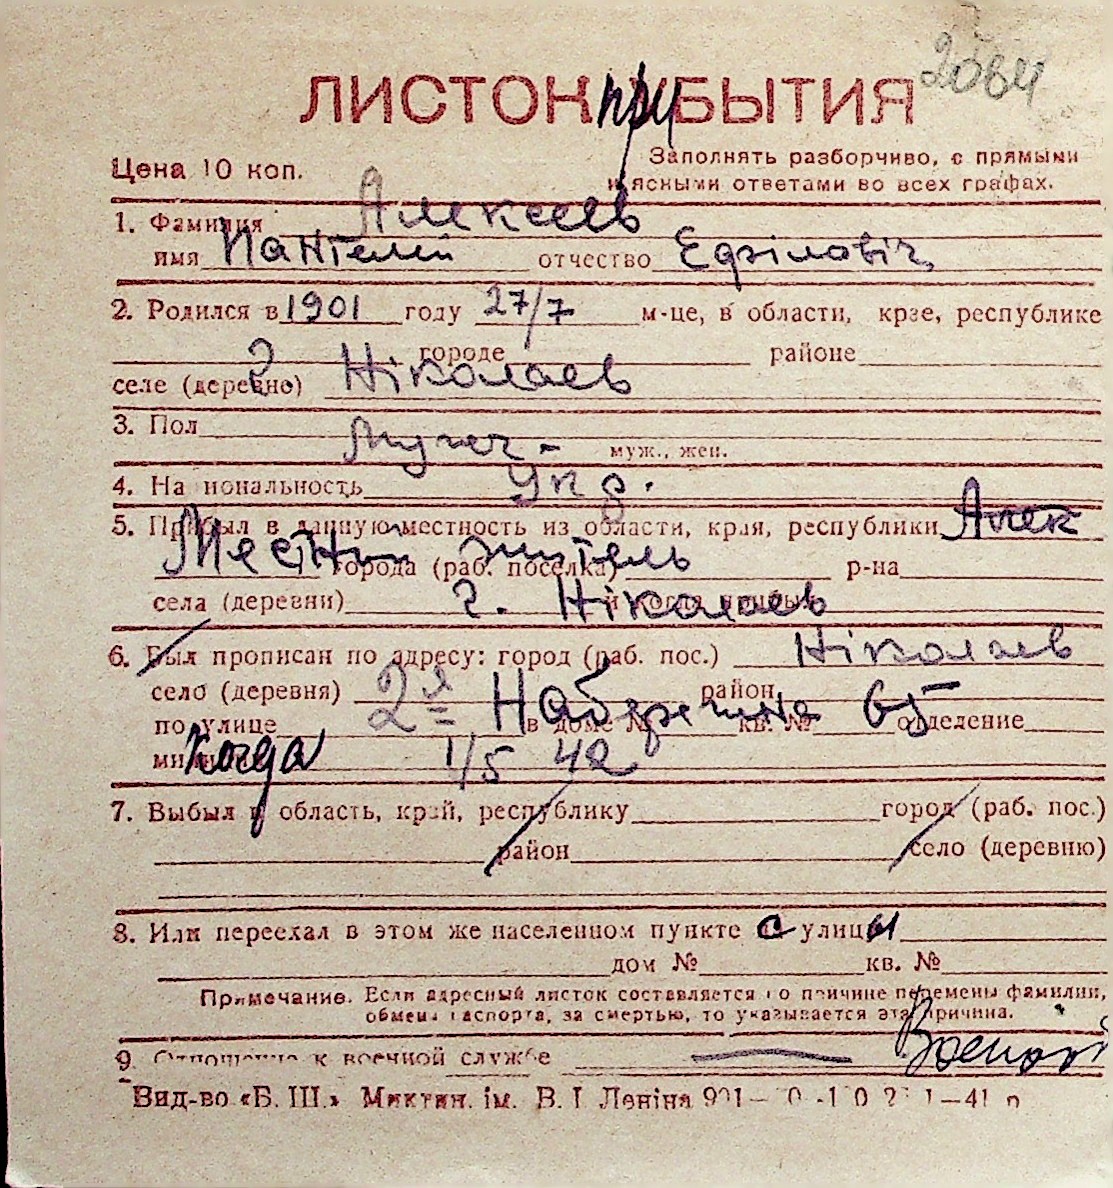 ЛИСТОК при БЫТИЯ
Цена 10 коп.
Заполнять разборчиво, с прямыми
и ясными ответами во всех графах.
1. Фамилия Алексеев
имя Пантелій отчество
2. Родился в 1901 году 27/7 м-це, в области, крае, республике
городе районе
селе (деревне) г. Ніколаев
3. Пол муж., жен.
4. На иональность укр.
5. Прибыл в данную местность из области, края, республики Алек
Местний житель города (раб. поселка) р-на
села (деревни) г. Ніколаев
6. Был прописан по адресу: город (раб. пос.) Ніколаев
село (деревня) район
2я Набережна 65
по улице в доме № кв. № отделение
Когда 1/5 42
7. Выбыл в область, край, республику город (раб. пос.)
район село (деревню)
8. Или переехал в этом же населенном пункте с улицы
дом № кв. №
Примечание. Если адресный листок составляется по причине перемены фамилии,
обмена паспорта, за смертью, то указывается эта причина.
9. Отношение к военной службе
Вид-во «Б. Ш.» Миктин. ім. В. І Леніна